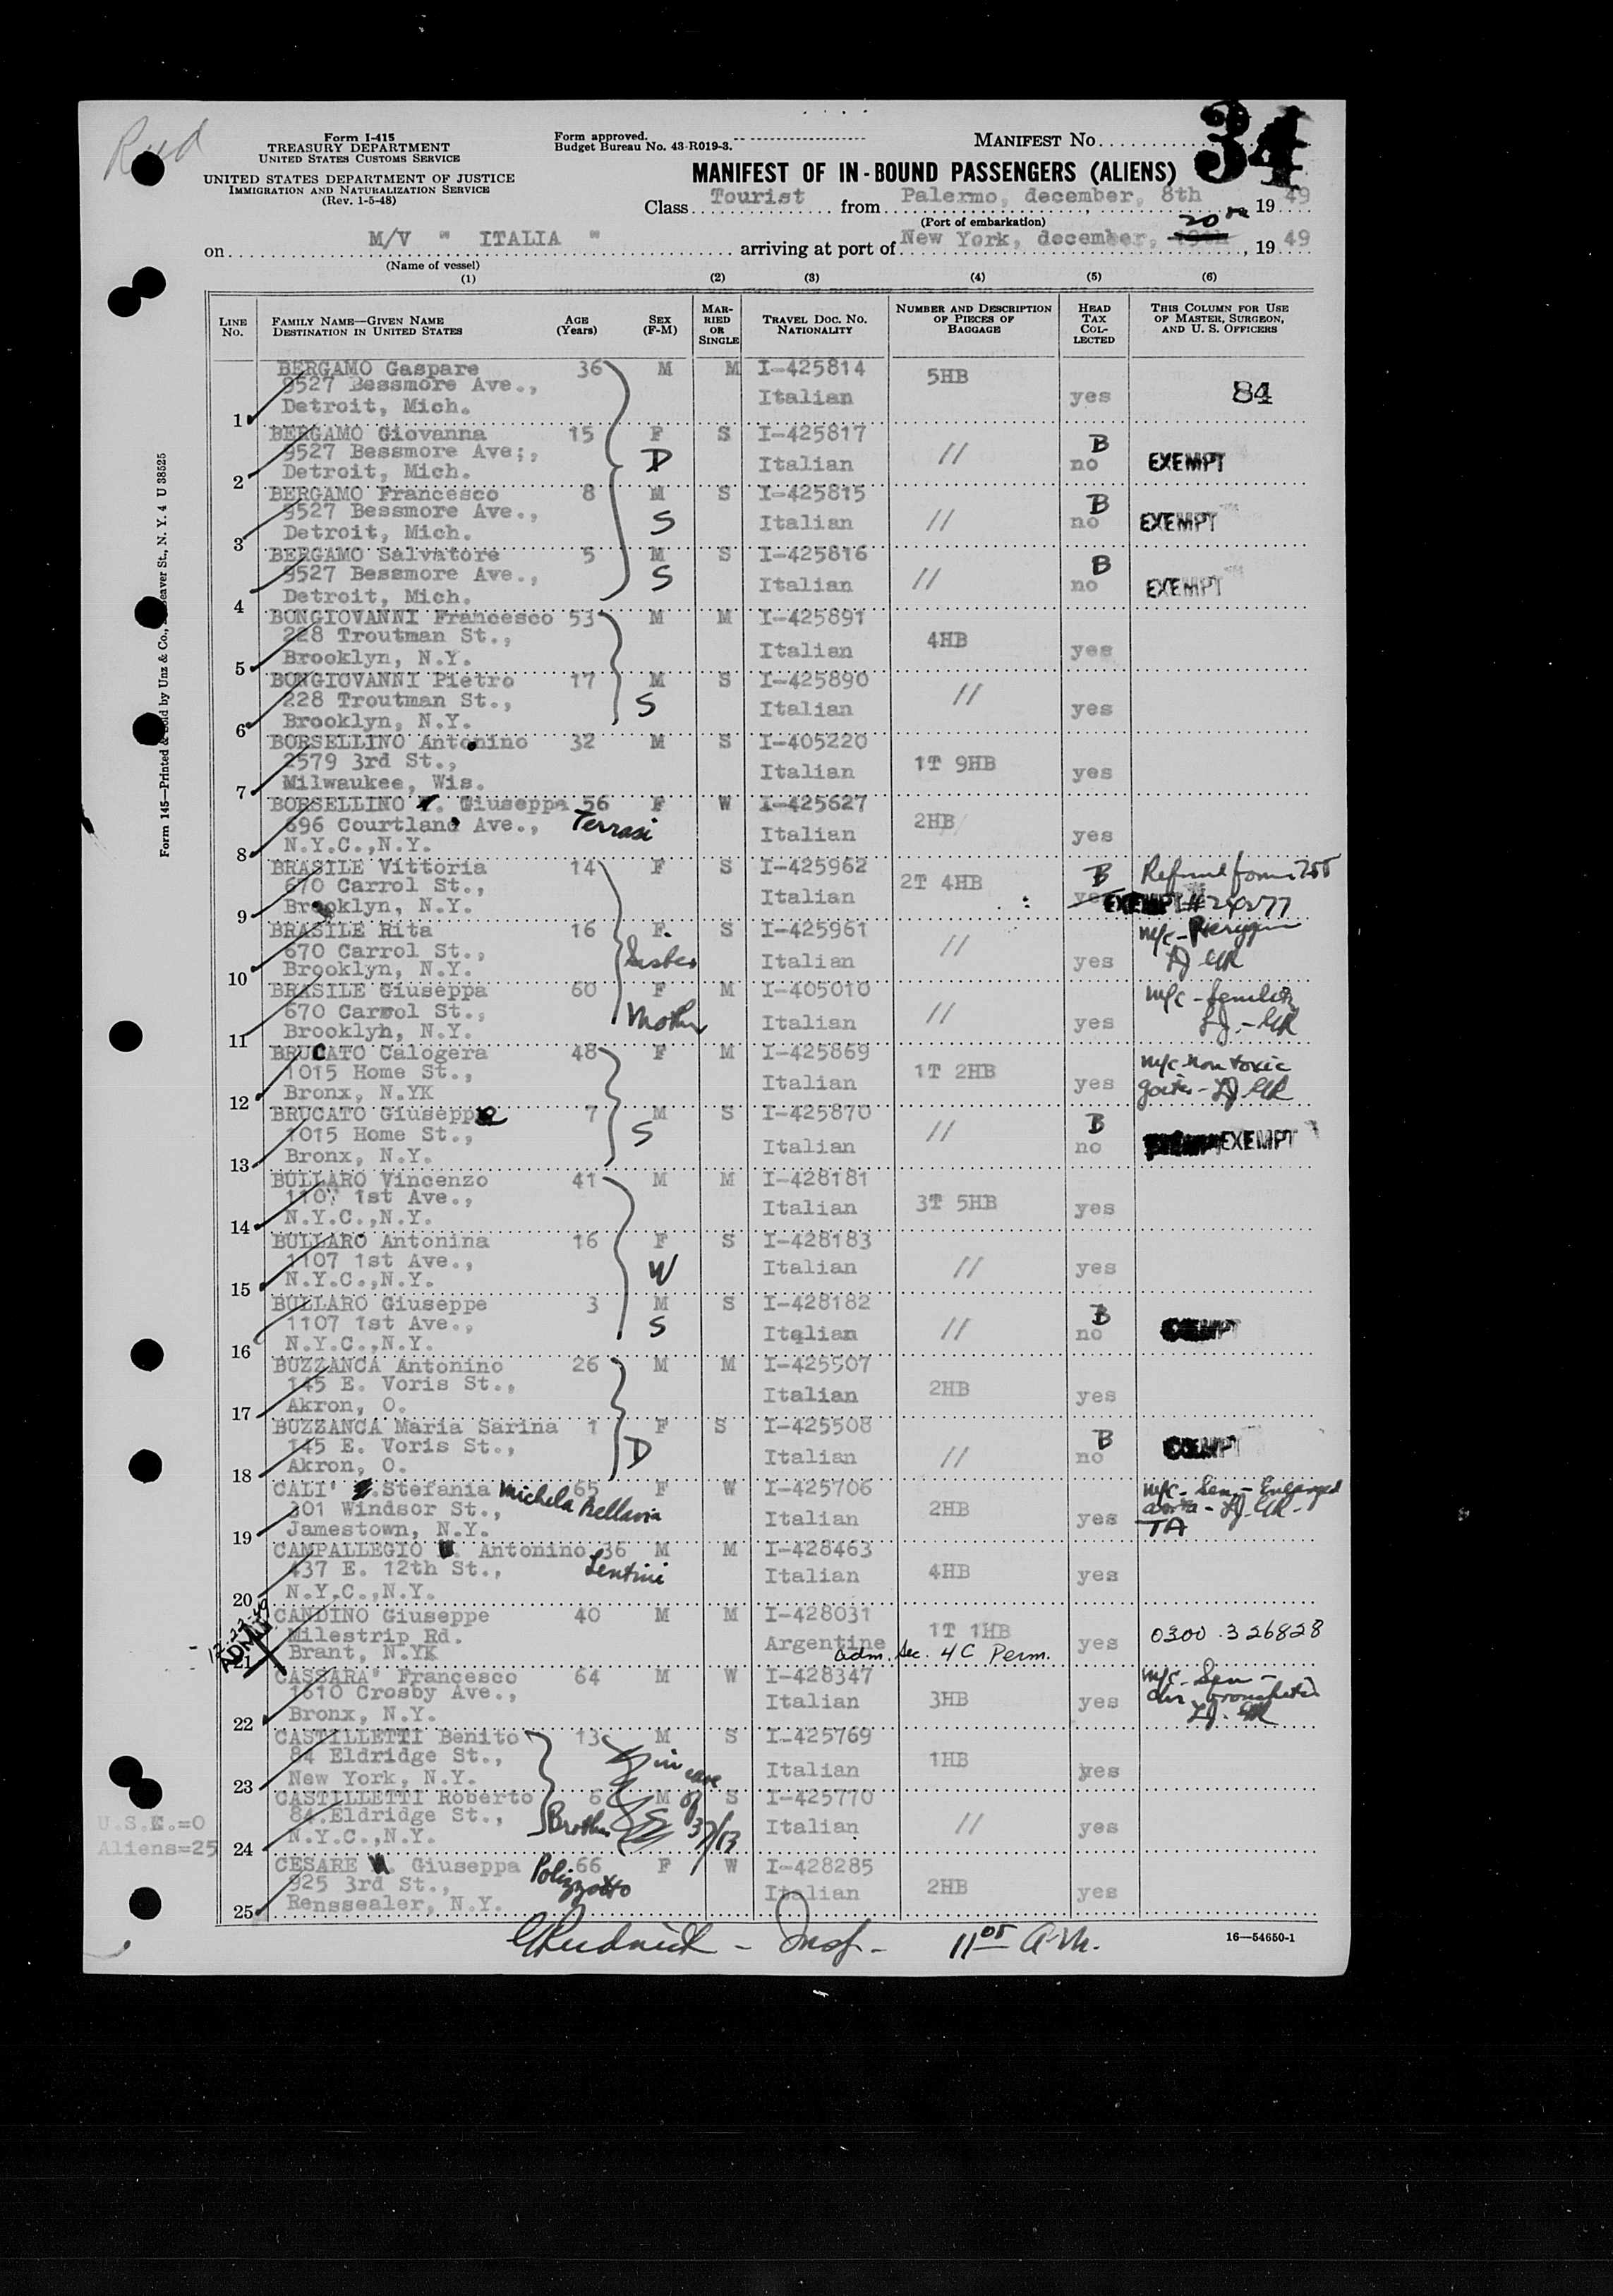 Form I-415
TREASURY DEPARTMENT
UNITED STATES CUSTOMS SERVICE
UNITED STATES DEPARTMENT OF JUSTICE
IMMIGRATION AND NATURALIZATION SERVICE
(Rev. 1-5-48)
Form approved.
Budget Bureau No. 43-R019-3.
MANIFEST NO. 34
MANIFEST OF IN-BOUND PASSENGERS (ALIENS)
Class Tourist from Palermo, december, 8th, 19 49
(Port of embarkation)
on M/V " ITALIA " arriving at port of New York, december, 19th 20th, 19 49
(Name of vessel)
(1) (2) (3) (4) (5) (6)
LINE NO. FAMILY NAME—GIVEN NAME DESTINATION IN UNITED STATES AGE (Years) SEX (F-M) MARRIED OR SINGLE TRAVEL DOC. NO. NATIONALITY NUMBER AND DESCRIPTION OF PIECES OF BAGGAGE HEAD TAX COLLECTED THIS COLUMN FOR USE OF MASTER, SURGEON, AND U. S. OFFICERS
BERGAMO Gaspare 36 M M I-425814 5HB
9527 Bessmore Ave., Italian yes 84
1 Detroit, Mich.
BERGAMO Giovanna 15 F S I-425817 // B
9527 Bessmore Ave;, D Italian no EXEMPT
2 Detroit, Mich.
BERGAMO Francesco 8 M S I-425815 // B
9527 Bessmore Ave., S Italian no EXEMPT
3 Detroit, Mich.
BERGAMO Salvatore 5 M S I-425816 // B
9527 Bessmore Ave., S Italian no EXEMPT
4 Detroit, Mich.
BONGIOVANNI Francesco 53 M M I-425891 4HB
228 Troutman St., Italian yes
5 Brooklyn, N.Y.
BONGIOVANNI Pietro 17 M S I-425890 //
228 Troutman St., S Italian yes
6 Brooklyn, N.Y.
BORSELLINO Antonino 32 M S I-405220 1T 9HB
2579 3rd St., Italian yes
7 Milwaukee, Wis.
BORSELLINO Giuseppa 56 F W I-425627 2HB
696 Courtland Ave., Terrasi Italian yes
8 N.Y.C.,N.Y.
BRASILE Vittoria 14 F S I-425962 2T 4HB B Refund form 755
670 Carrol St., Italian yes EXEMPT #24277
9 Brooklyn, N.Y.
BRASILE Rita 16 F S I-425961 // m/c
670 Carrol St., Sister Italian yes
10 Brooklyn, N.Y.
BRASILE Giuseppa 60 F M I-405010 // m/c - Senility
670 Carrol St., Mother Italian yes
11 Brooklyn, N.Y.
BRUCATO Calogera 48 F M I-425869 1T 2HB m/c non toxic
1015 Home St., Italian yes goiter
12 Bronx, N.YK
BRUCATO Giuseppe 7 M S I-425870 // B
1015 Home St., S Italian no EXEMPT
13 Bronx, N.Y.
BULLARO Vincenzo 41 M M I-428181 3T 5HB
1107 1st Ave., Italian yes
14 N.Y.C.,N.Y.
BULLARO Antonina 16 F S I-428183 //
1107 1st Ave., W Italian yes
15 N.Y.C.,N.Y.
BULLARO Giuseppe 3 M S I-428182 // B
1107 1st Ave., S Italian no EXEMPT
16 N.Y.C.,N.Y.
BUZZANCA Antonino 26 M M I-425507 2HB
145 E. Voris St., Italian yes
17 Akron, O.
BUZZANCA Maria Sarina 1 F S I-425508 // B
145 E. Voris St., D Italian no EXEMPT
18 Akron, O.
CALI' Stefania Michela Bellavia 65 F W I-425706 2HB m/c - Sen. - Enlarged
301 Windsor St., Italian yes aorta
19 Jamestown, N.Y. TA
CAMPALLEGIO Antonino 36 M M I-428463 4HB
437 E. 12th St., Lentini Italian yes
20 N.Y.C.,N.Y.
CANDINO Giuseppe 40 M M I-428031 1T 1HB
Milestrip Rd. Argentine yes 0300 . 326828
21 Brant, N.YK Adm. Sec. 4C Perm.
CASSARA' Francesco 64 M W I-428347 3HB m/c - Sen -
1610 Crosby Ave., Italian yes chr bronchitis
22 Bronx, N.Y.
CASTILLETTI Benito 13 M S I-425769 1HB
84 Eldridge St., in care Italian yes
23 New York, N.Y.
CASTILLETTI Roberto 6 M of S I-425770 //
84.Eldridge St., Brother 37/13 Italian yes
24 N.Y.C.,N.Y.
U.S.C.=0
Aliens=25
CESARE Giuseppa Polizzotto 66 F W I-428285 2HB
925 3rd St., Italian yes
25 Renssealer, N.Y.
Insp. 11 05 A.M.
16—54650-1